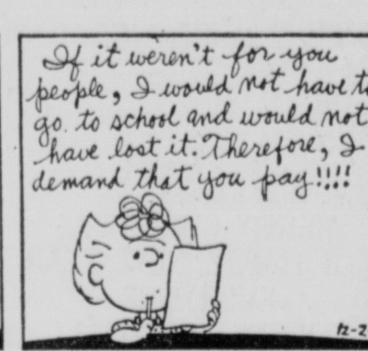 If it weren't for you
people, I would not have to
go to school and would not
have lost it. Therefore, I
demand that you pay!!!!
12-2